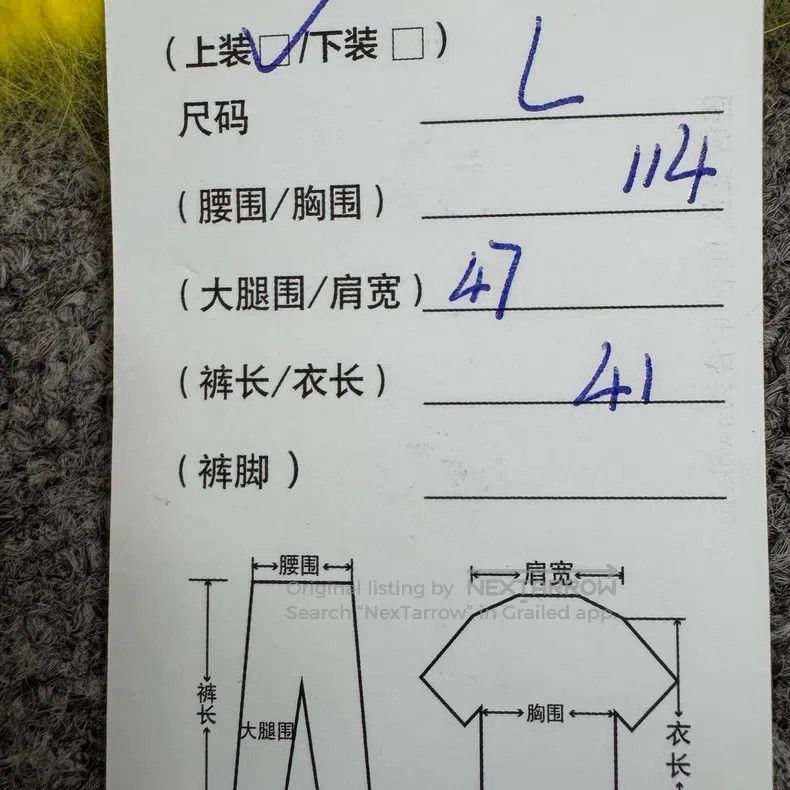 (上装☑/下装□)
尺码 L
(腰围/胸围) 114
(大腿围/肩宽) 47
(裤长/衣长) 41
(裤脚)
腰围
肩宽
Original listing by NEXTARROW
Search "NexTarrow" in Grailed app.
裤长
大腿围
胸围
衣长